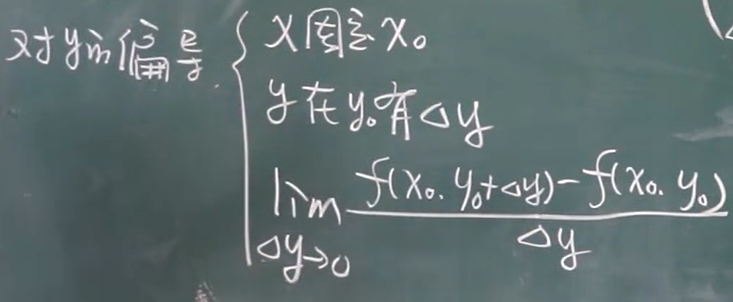 对y的偏导
x固定x₀
y在y₀有△y
lim △y→0 f(x₀.y₀+△y)-f(x₀.y₀) / △y